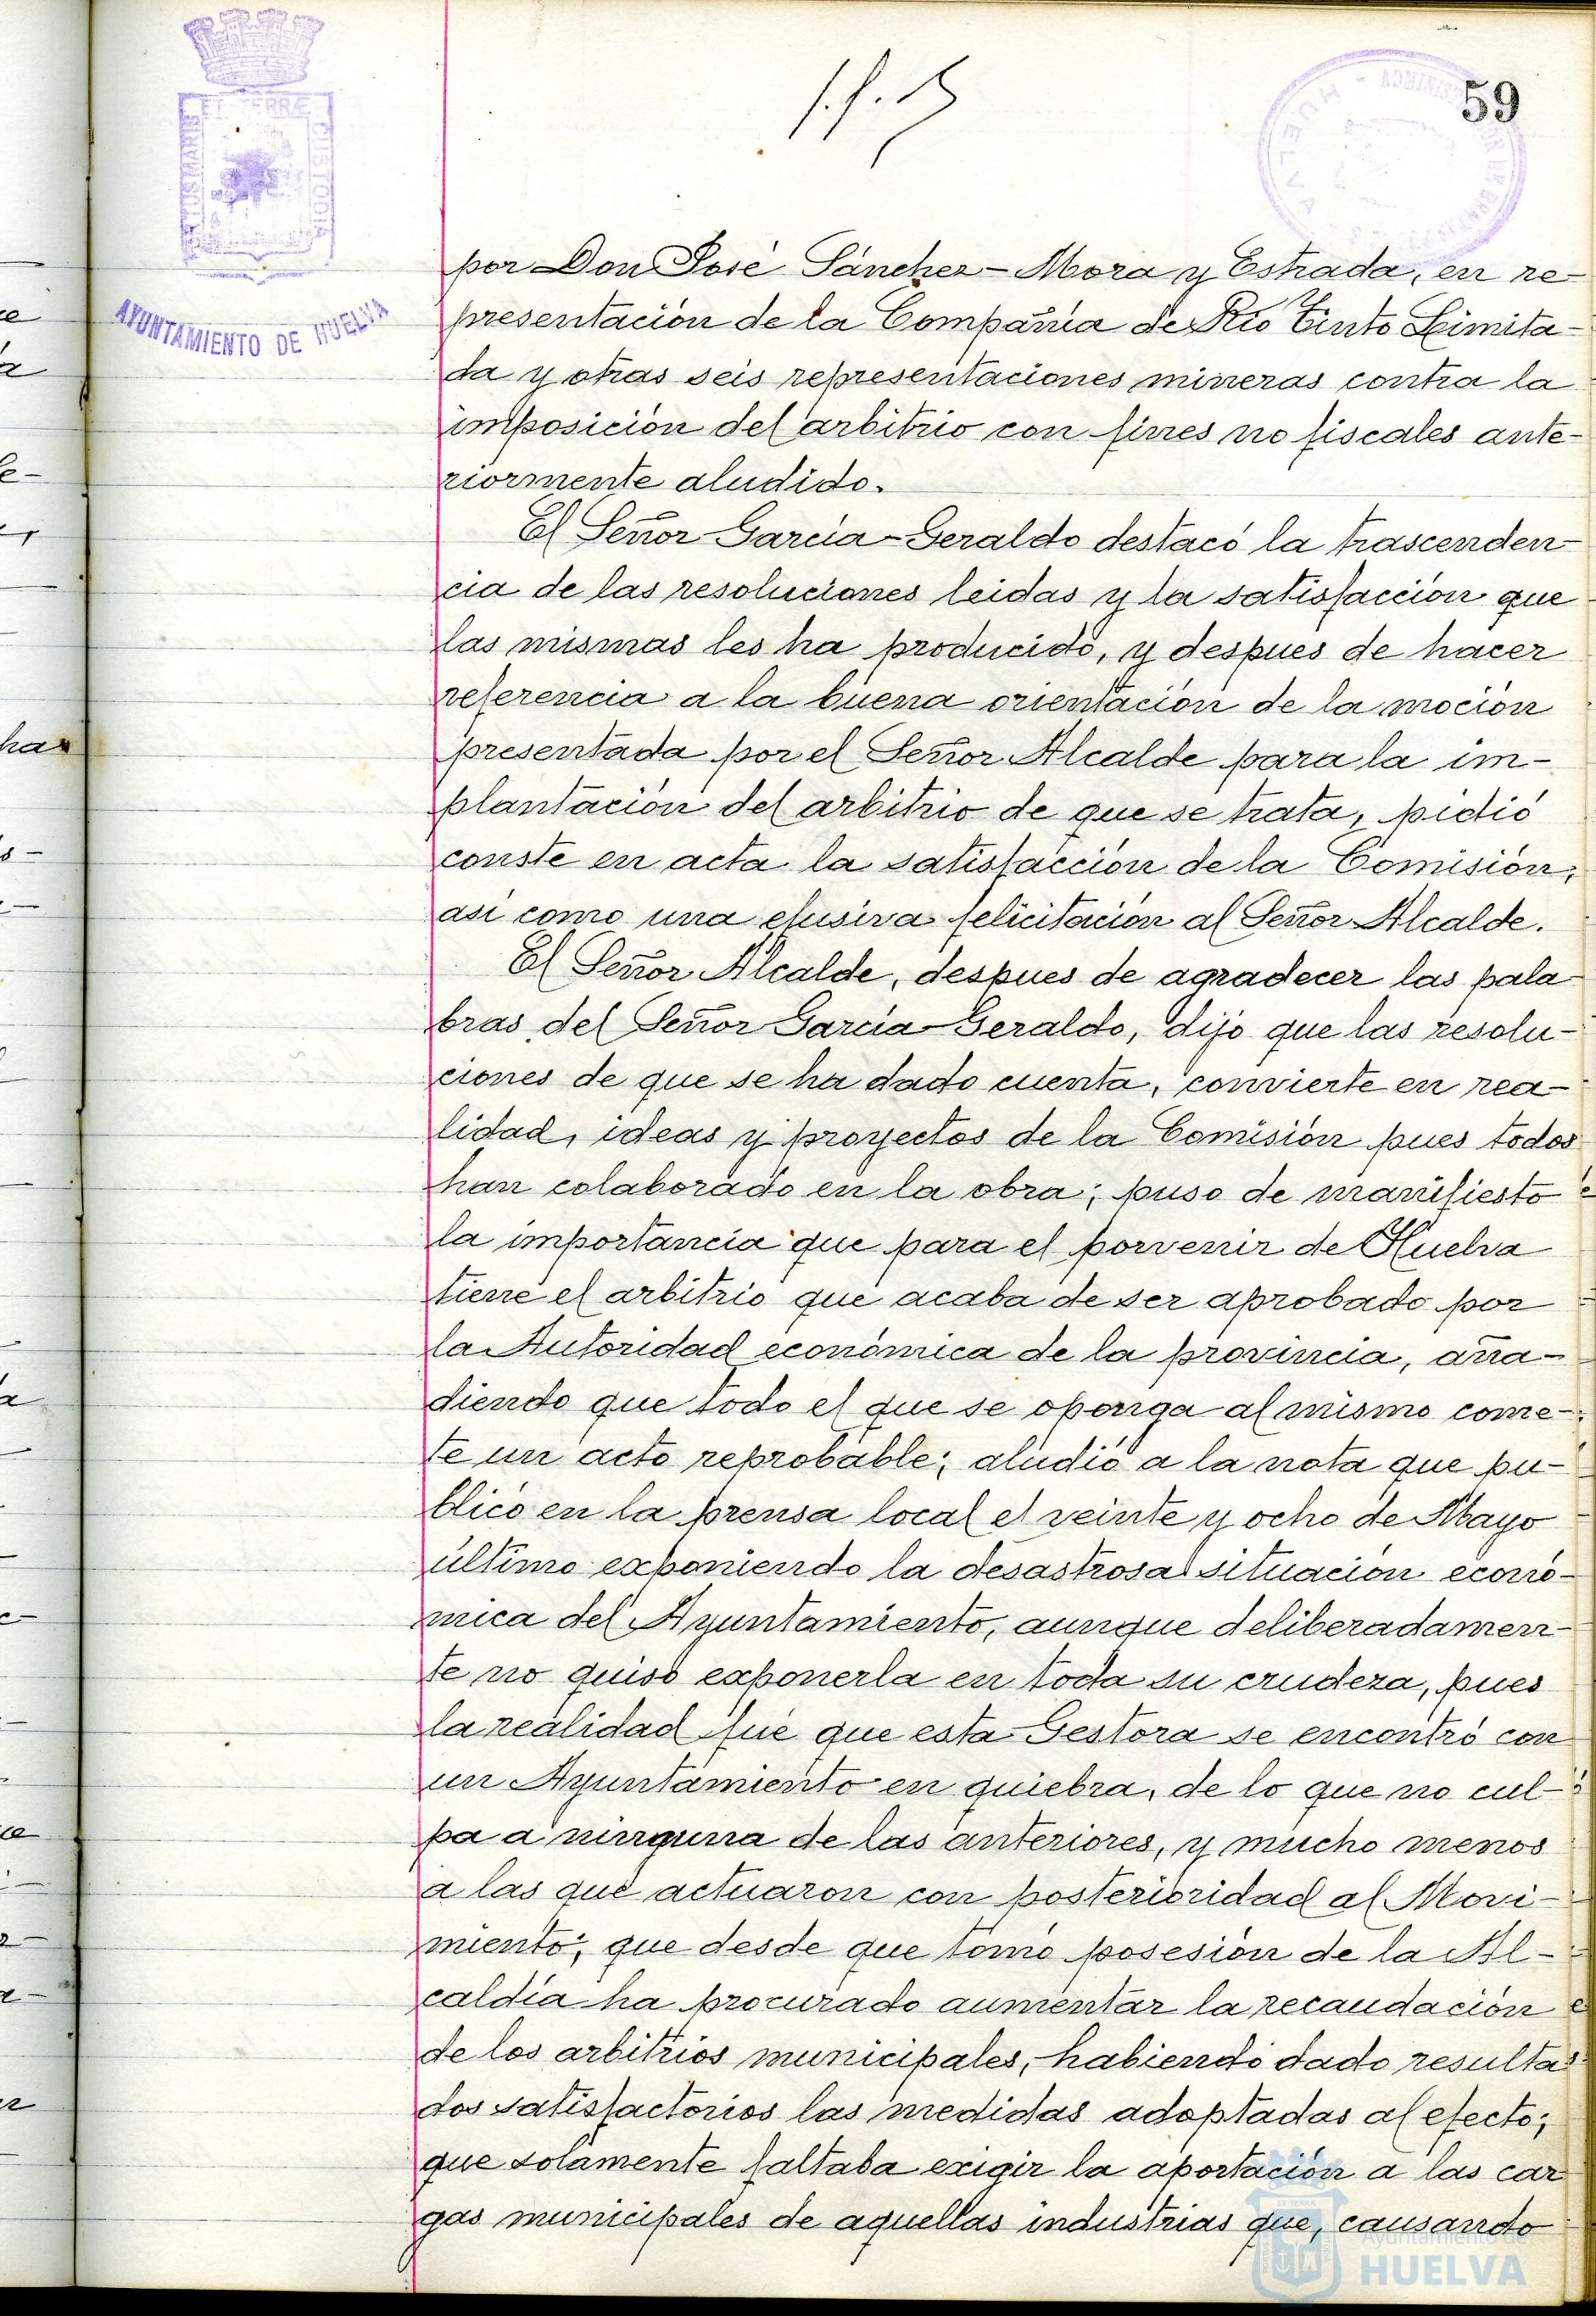 59
ET TERRÆ
CUSTODIA
AYUNTAMIENTO DE HUELVA
HUELVA
por Don José Sánchez-Mora y Estrada, en re-
presentación de la Compañía de Río Tinto Limita-
da y otras seis representaciones mineras contra la
imposición del arbitrio con fines no fiscales ante-
riormente aludido.
El Señor García-Geraldo destacó la trascenden-
cia de las resoluciones leidas y la satisfacción que
las mismas les ha producido, y despues de hacer
referencia a la buena orientación de la moción
presentada por el Señor Alcalde para la im-
plantación del arbitrio de que se trata, pidió
conste en acta la satisfacción de la Comisión,
asi como una efusiva felicitación al Señor Alcalde.
El Señor Alcalde, despues de agradecer las pala-
bras del Señor García-Geraldo, dijo que las resolu-
ciones de que se ha dado cuenta, convierte en rea-
lidad, ideas y proyectos de la Comisión pues todos
han colaborado en la obra; puso de manifiesto
la importancia que para el porvenir de Huelva
tiene el arbitrio que acaba de ser aprobado por
la Autoridad económica de la provincia, aña-
diendo que todo el que se oponga al mismo come-
te un acto reprobable; aludió a la nota que pu-
blicó en la prensa local el veinte y ocho de Mayo
último exponiendo la desastrosa situación econó-
mica del Ayuntamiento, aunque deliberadamen-
te no quiso exponerla en toda su crudeza, pues
la realidad fué que esta Gestora se encontró con
un Ayuntamiento en quiebra, de lo que no cul-
pa a ninguna de las anteriores, y mucho menos
a las que actuaron con posterioridad al Movi-
miento; que desde que tomó posesión de la Al-
caldía ha procurado aumentar la recaudación
de los arbitrios municipales, habiendo dado resulta-
dos satisfactorios las medidas adoptadas al efecto;
que solamente faltaba exigir la aportación a las car
gas municipales de aquellas industrias que, causando
Ayuntamiento de
HUELVA